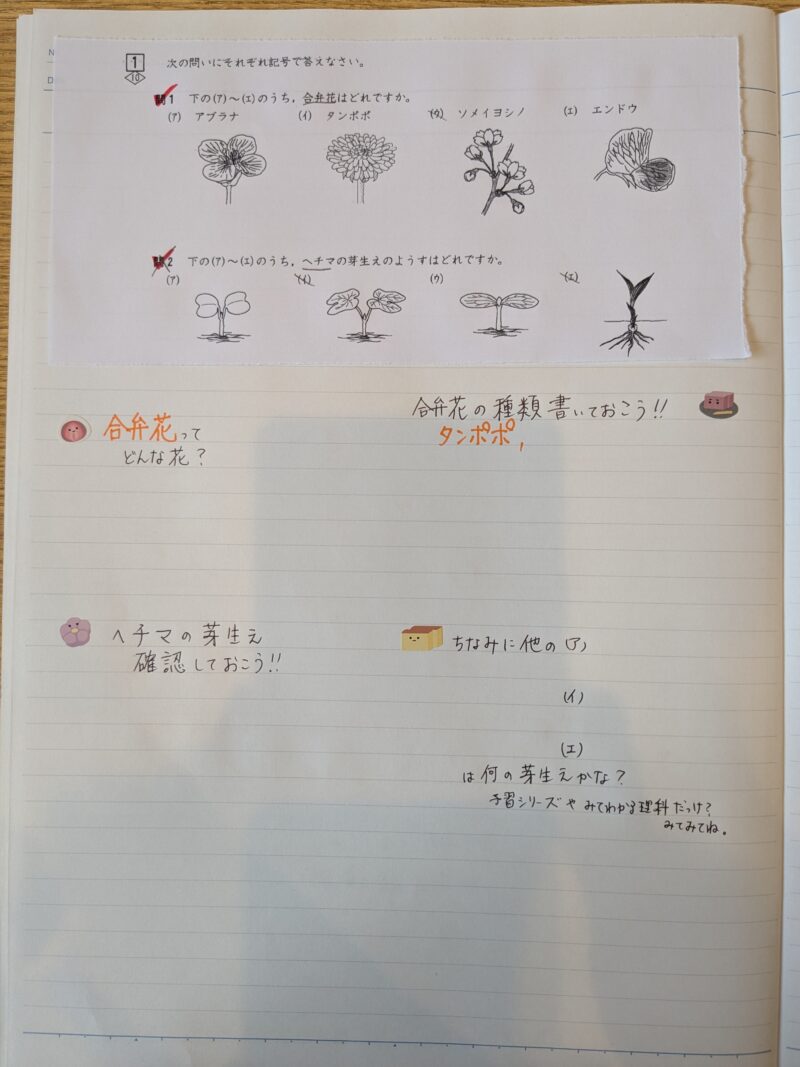 N
D
1
10
次の問いにそれぞれ記号で答えなさい。
問1 下の(ア)～(エ)のうち，合弁花はどれですか。
(ア) アブラナ (イ) タンポポ (ウ) ソメイヨシノ (エ) エンドウ
問2 下の(ア)～(エ)のうち，ヘチマの芽生えのようすはどれですか。
(ア) (イ) (ウ) (エ)
合弁花って
どんな花？
合弁花の種類書いておこう!!
タンポポ，
ヘチマの芽生え
確認しておこう!!
ちなみに他の (ア)
(イ)
(エ)
は何の芽生えかな？
予習シリーズや みてわかる理科だっけ？
みてみてね。